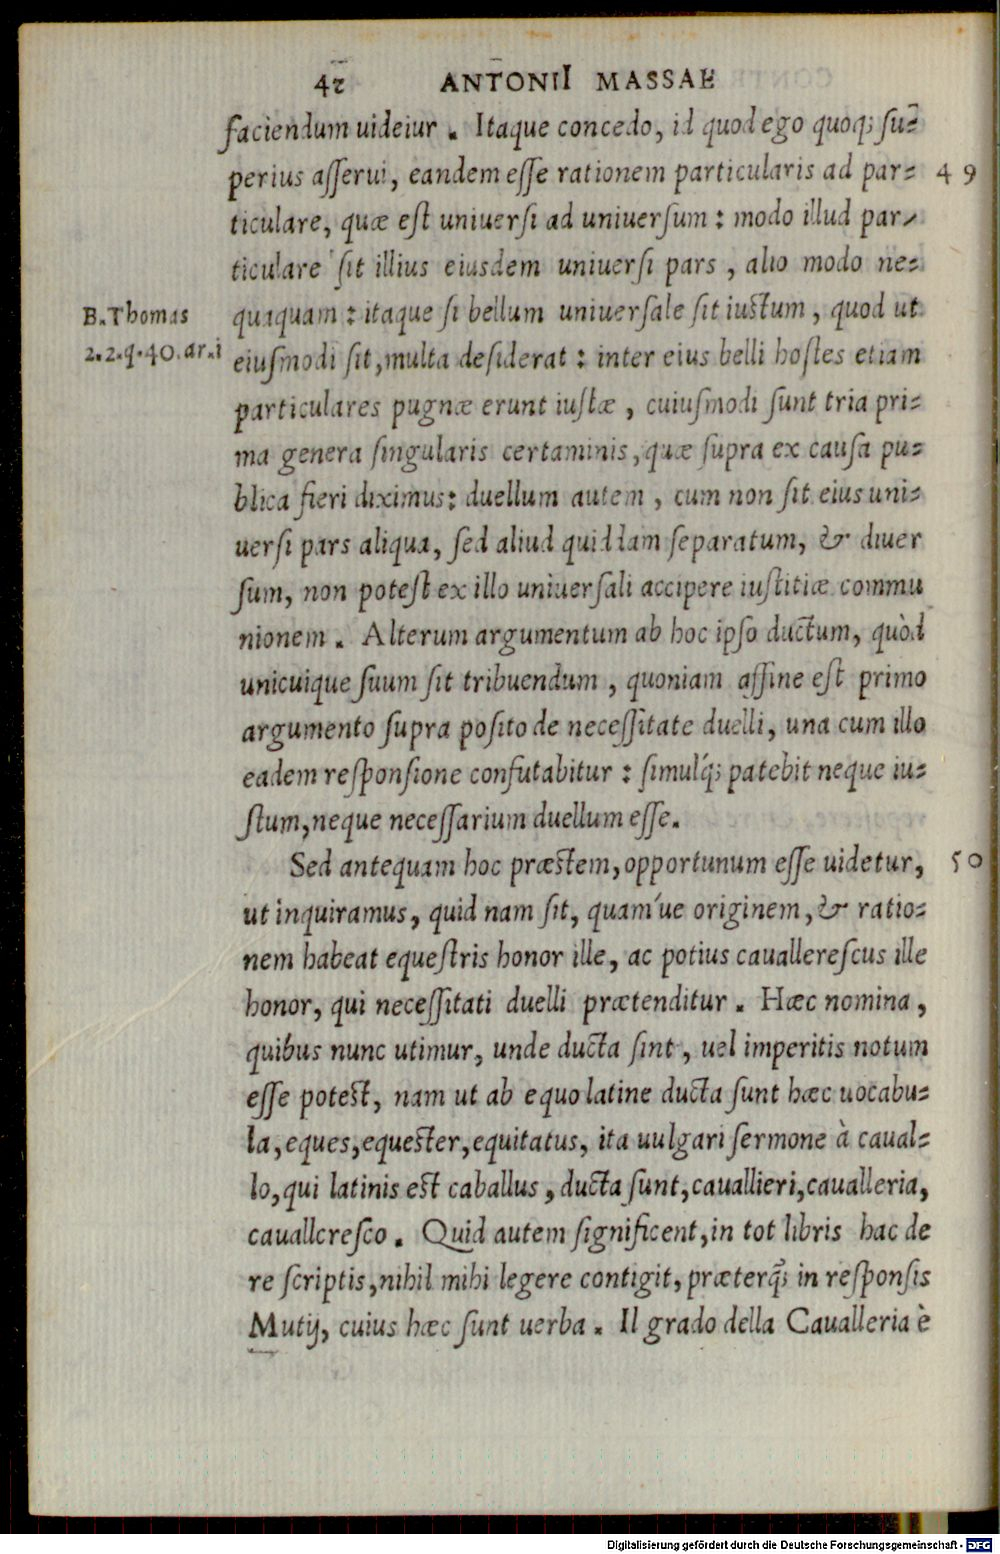 42 ANTONII MASSAE
faciendum uidetur. Itaque concedo, id quod ego quoq; su-
perius asserui, eandem esse rationem particularis ad par- 49
ticulare, quæ est uniuersi ad uniuersum: modo illud par-
ticulare sit illius eiusdem uniuersi pars, alio modo ne-
B. Thomas quaquam: itaque si bellum uniuersale sit iustum, quod ut
2.2.q.40.ar.i eiusmodi sit, multa desiderat: inter eius belli hostes etiam
particulares pugnæ erunt iustæ, cuiusmodi sunt tria pri-
ma genera singularis certaminis, quæ supra ex causa pu-
blica fieri diximus: duellum autem, cum non sit eius uni-
uersi pars aliqua, sed aliud quiddam separatum, & diuer
sum, non potest ex illo uniuersali accipere iustitiæ commu
nionem. Alterum argumentum ab hoc ipso ductum, quòd
unicuique suum sit tribuendum, quoniam affine est primo
argumento supra posito de necessitate duelli, una cum illo
eadem responsione confutabitur: simulq́; patebit neque iu-
stum, neque necessarium duellum esse.
Sed antequam hoc præstem, opportunum esse uidetur, 50
ut inquiramus, quid nam sit, quam´ue originem, & ratio-
nem habeat equestris honor ille, ac potius cauallerescus ille
honor, qui necessitati duelli prætenditur. Hæc nomina,
quibus nunc utimur, unde ducta sint, uel imperitis notum
esse potest, nam ut ab equo latine ducta sunt hæc uocabu-
la, eques, equester, equitatus, ita uulgari sermone à caual-
lo, qui latinis est caballus, ducta sunt, cauallieri, caualleria,
cauallcresco. Quid autem significent, in tot libris hac de
re scriptis, nihil mihi legere contigit, præterq̃; in responsis
Mutij, cuius hæc sunt uerba. Il grado della Caualleria è
Digitalisierung gefördert durch die Deutsche Forschungsgemeinschaft - DFG